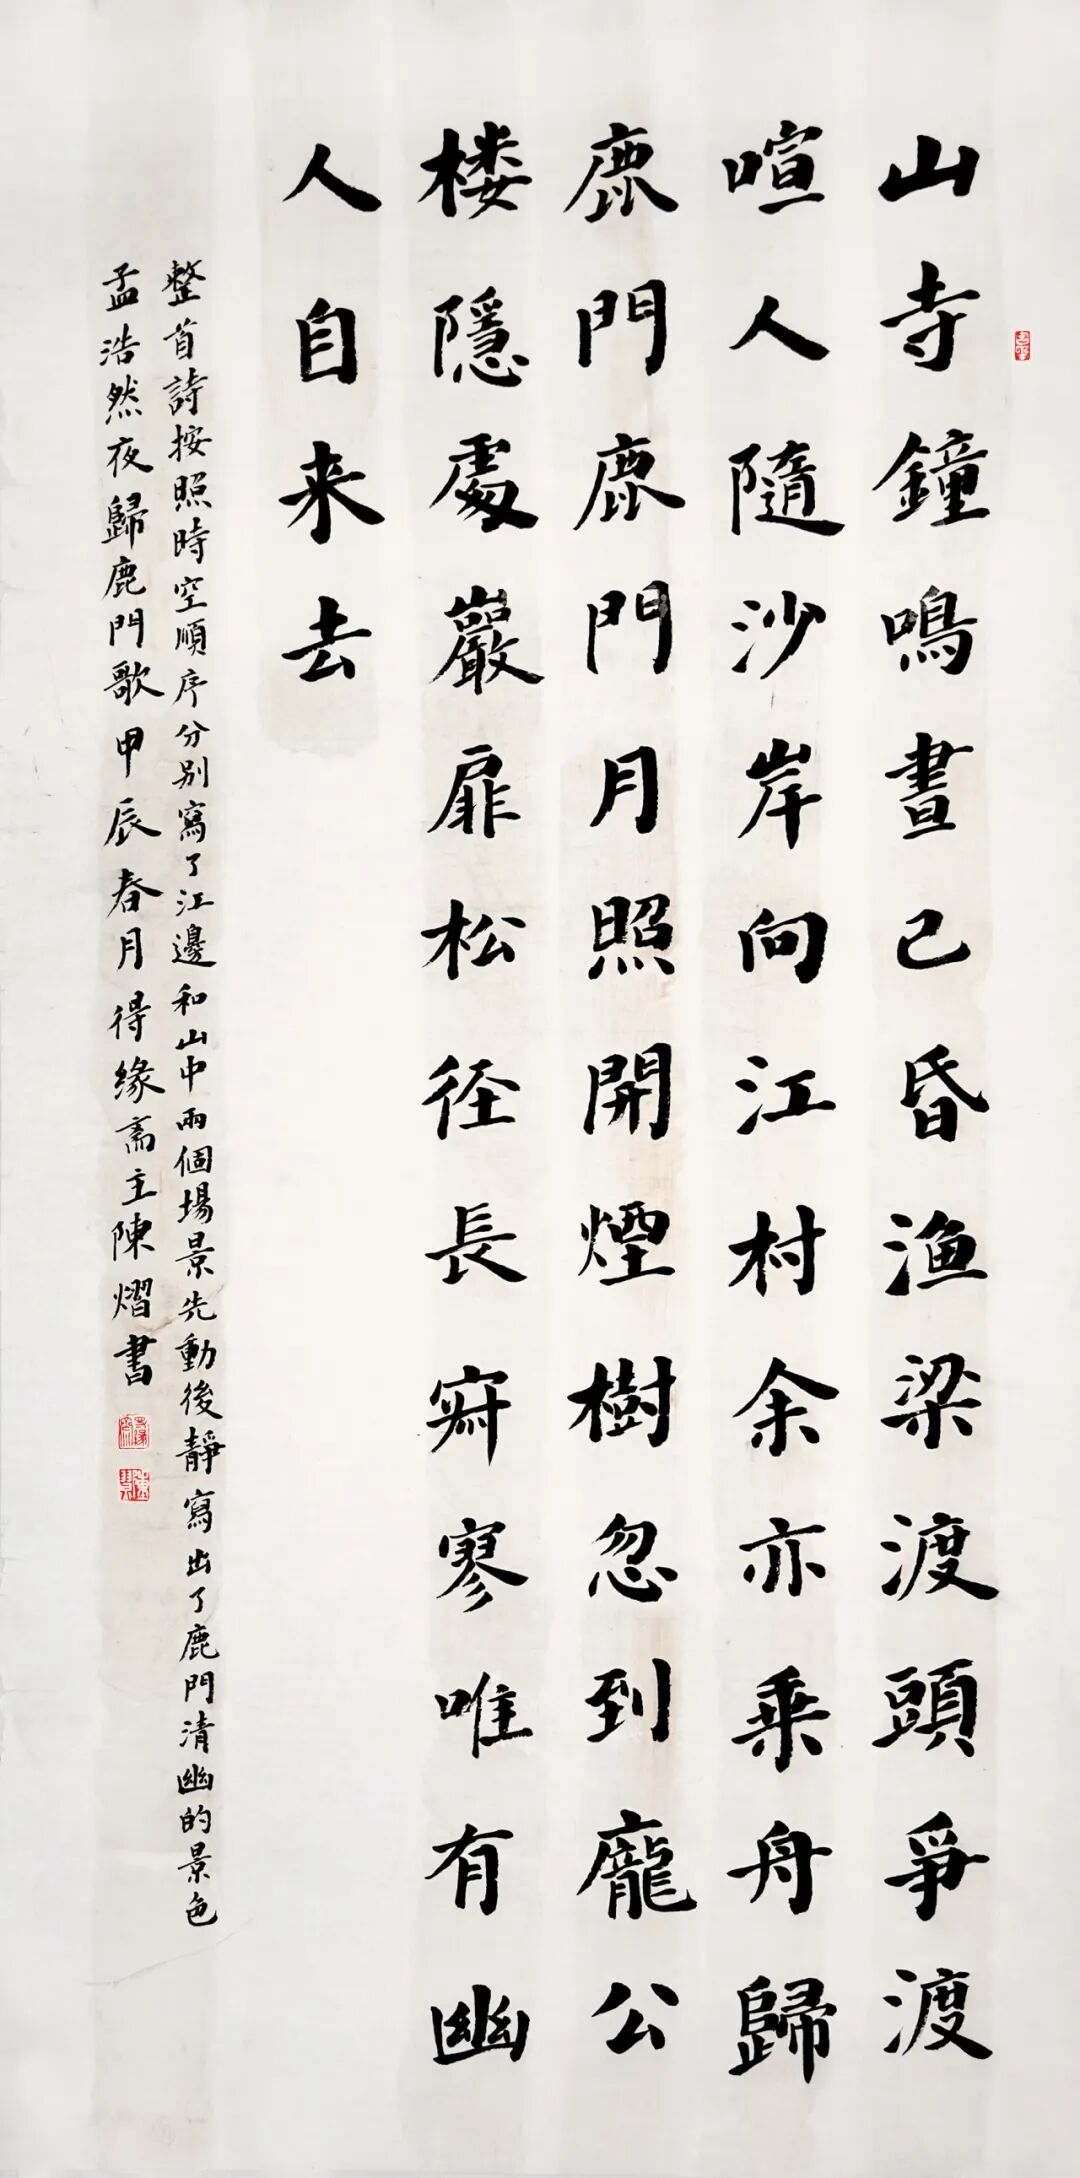 山寺鐘鳴晝已昏渔梁渡頭爭渡
喧人隨沙岸向江村余亦乘舟歸
鹿門鹿門月照開煙樹忽到龐公
楼隱處巖扉松径長寂寥唯有幽
人自来去
整首詩按照時空順序分別寫了江邊和山中兩個場景先動後靜寫出了鹿門清幽的景色
孟浩然夜歸鹿門歌甲辰春月得緣斋主陳熠書